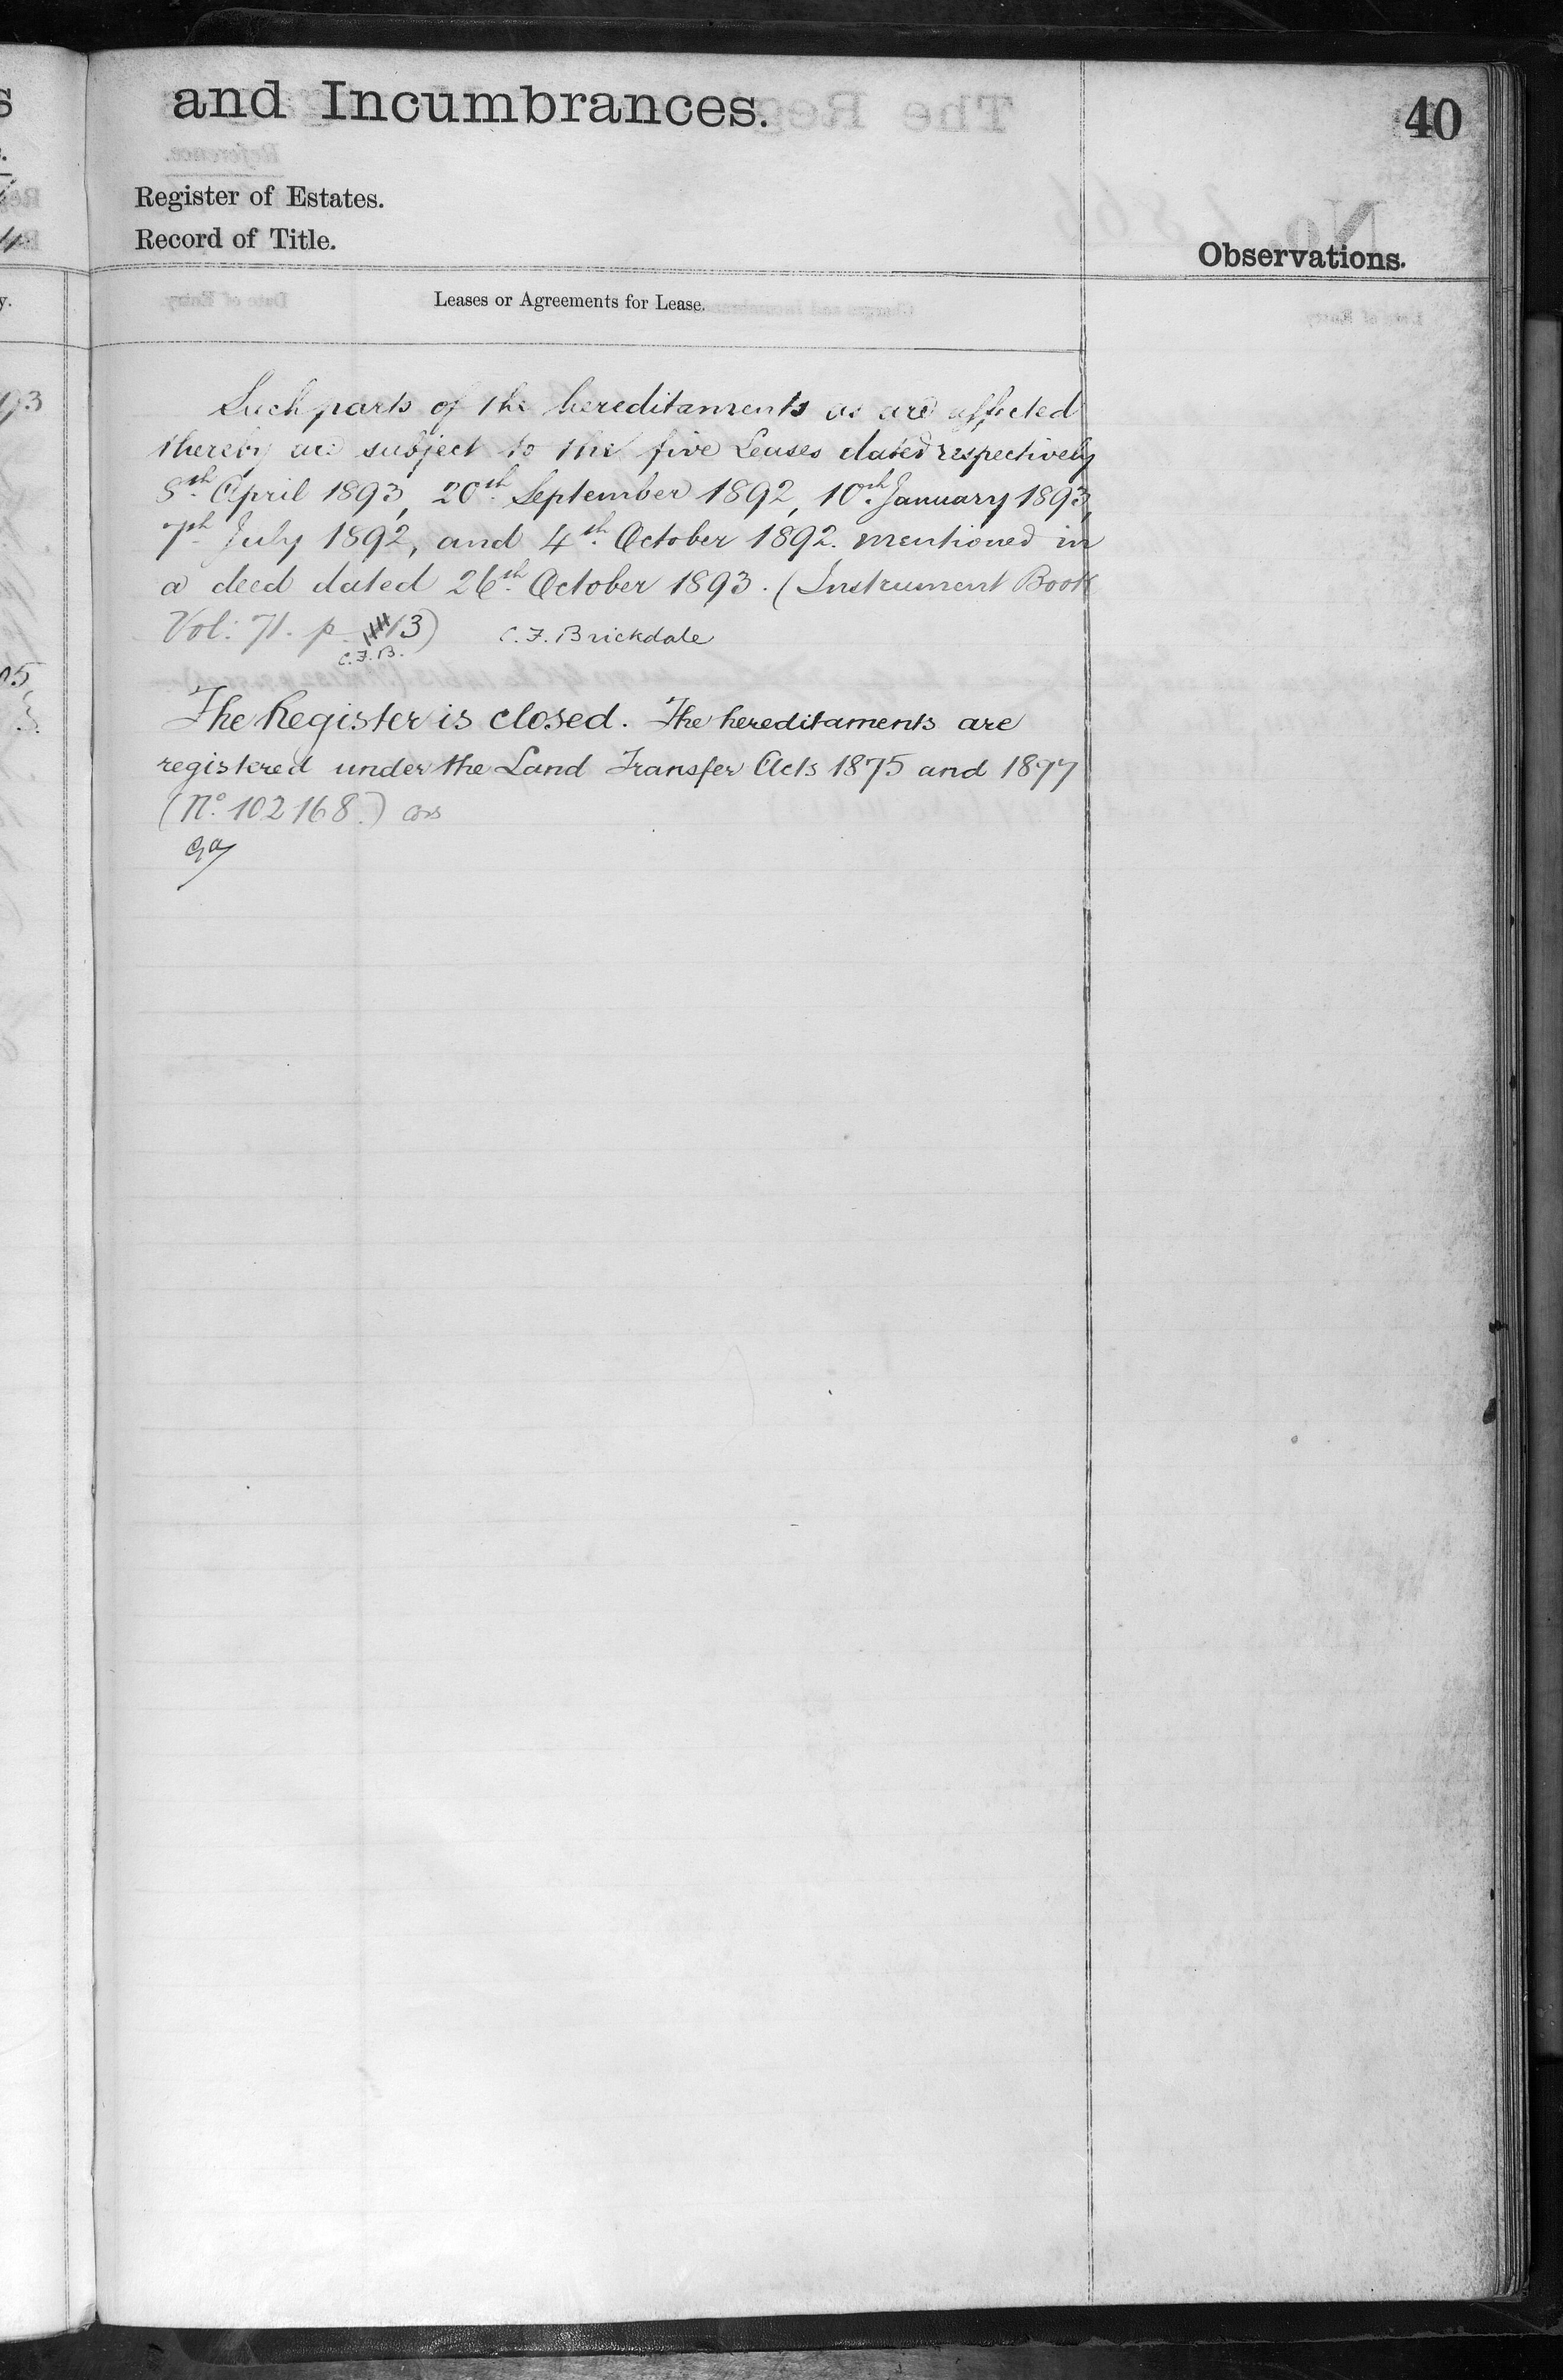 and Incumbrances.
40
Register of Estates.
Record of Title.
Observations.
Leases or Agreements for Lease.
Such parts of the hereditaments as are affected
thereby are subject to the five Leases dated respectively
8th April 1893, 20th September 1892, 10th January 1893,
7th July 1892, and 4th October 1892. mentioned in
a deed dated 26th October 1893. (Instrument Book
Vol: 71. p 13) C. F. Brickdale
C.F.B.
The Register is closed. The hereditaments are
registered under the Land Transfer Acts 1875 and 1897
(No. 102168.)